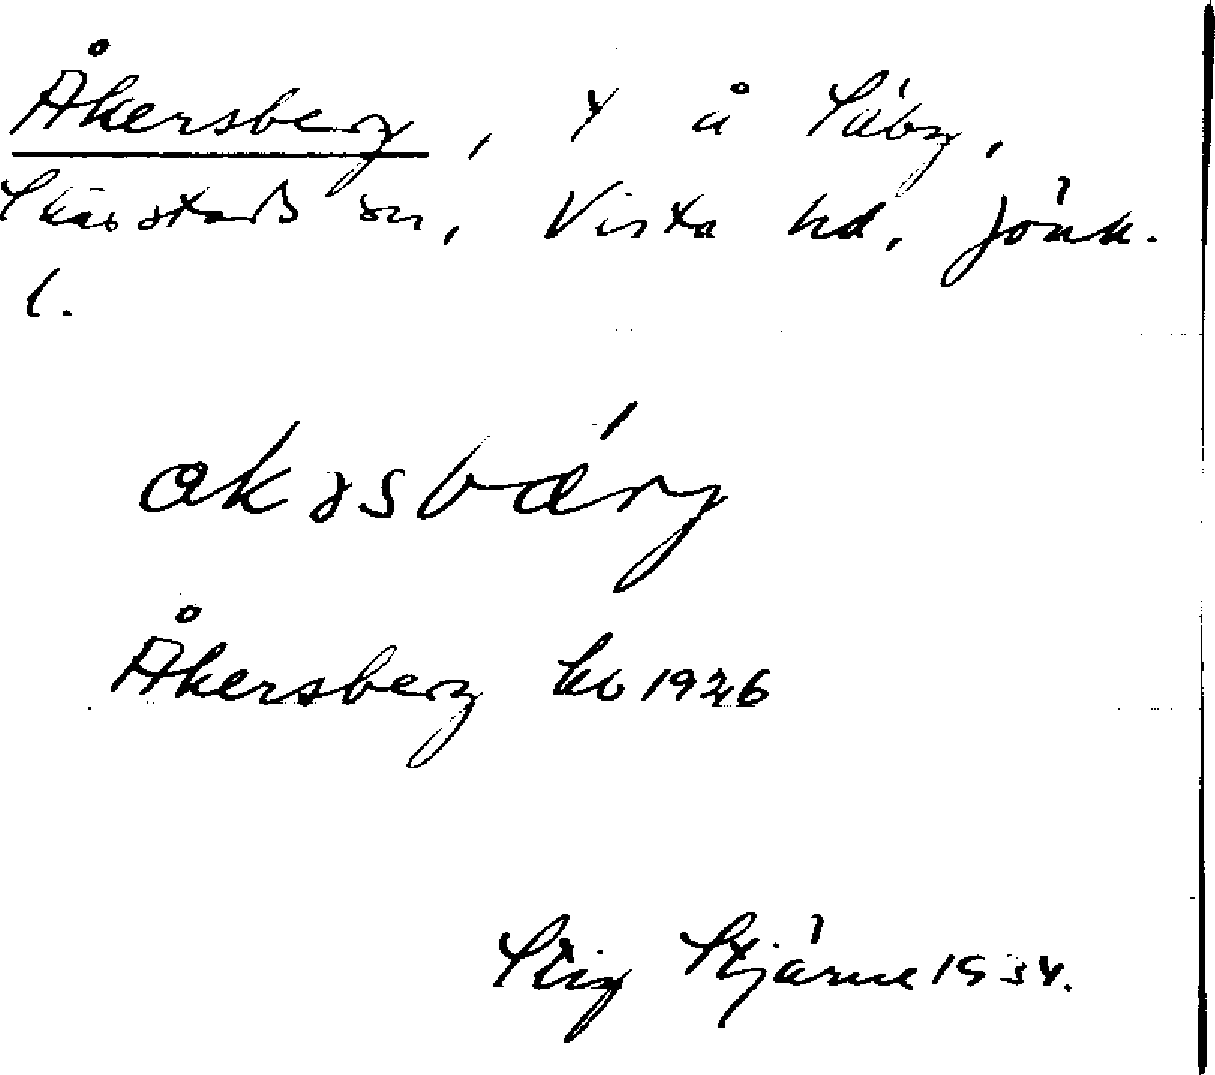 Åkersberg, t å Säby,
Skärstads sn, Vista hd, Jönk.
l.
akəsbärg
Åkersberg kb 1926
Stig Stjärne 1934.